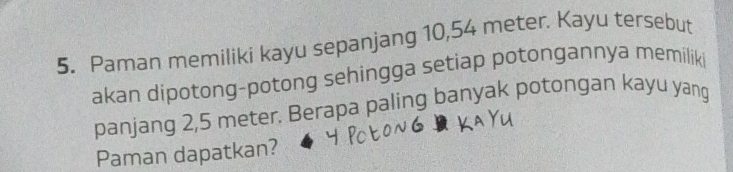 5. Paman memiliki kayu sepanjang 10,54 meter. Kayu tersebut
akan dipotong-potong sehingga setiap potongannya memiliki
panjang 2,5 meter. Berapa paling banyak potongan kayu yang
Paman dapatkan? 4 POTONG KAYU